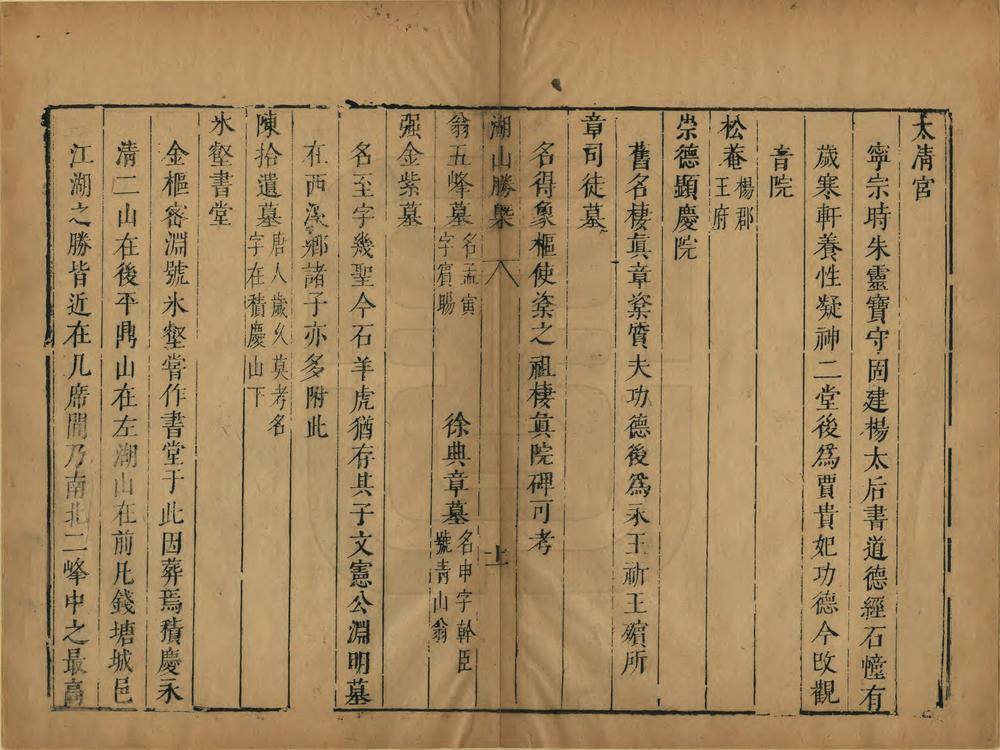 太清宮
寧宗時朱靈寶守固建楊太后書道德經石幢有
歲寒軒養性凝神二堂後爲賈貴妃功德今改觀
音院
松菴楊郡
王府
崇德顯慶院
舊名棲眞章楶質夫功德後爲永王祈王殯所
章司徒墓
名得象樞使楶之祖棲眞院碑可考
湖山勝槩 八 上
翁五峰墓名孟寅
字賓暘 徐典章墓名申字幹臣
號青山翁
强金紫墓
名至字幾聖今石羊虎猶存其子文憲公淵明墓
在西溪鄉諸子亦多附此
陳拾遺墓唐人歲久莫考名
字在積慶山下
氷壑書堂
金樞密淵號氷壑嘗作書堂于此因葬焉積慶永
清二山在後平鳸山在左湖山在前凡錢塘城邑
江湖之勝皆近在几席間乃南北二峰中之最高